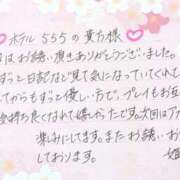 ホテル 555の貴方様
はお誘い頂きありがとうございました。
ずっと日記など見て気になっていてくれて
てからもずっと優しい方で、プレイもお互
気持ち良くなれて嬉しかったです。次回はアナ
楽しみにしてます。またお誘いお
しております。